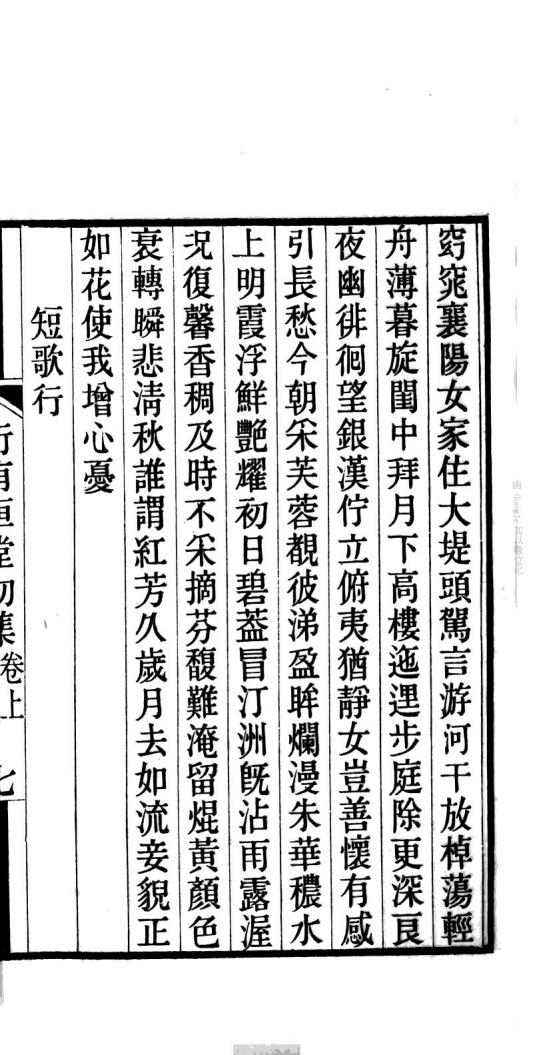 窈窕襄陽女家住大堤頭駕言游河干放棹蕩輕
舟薄暮旋閨中拜月下高樓迤逕步庭除更深良
夜幽徘徊望銀漢佇立俯夷猶靜女豈善懷有感
引長愁今朝采芙蓉覩彼涕盈眸爛漫朱華穠水
上明霞浮鮮艷耀初日碧葢冒汀洲旣沾雨露渥
况復馨香稠及時不采摘芬馥難淹留焜黃顏色
衰轉瞬悲淸秋誰謂紅芳久歲月去如流妾貌正
如花使我增心憂
短歌行
行有恒堂初集 卷上 七
由 Google 加以數位化